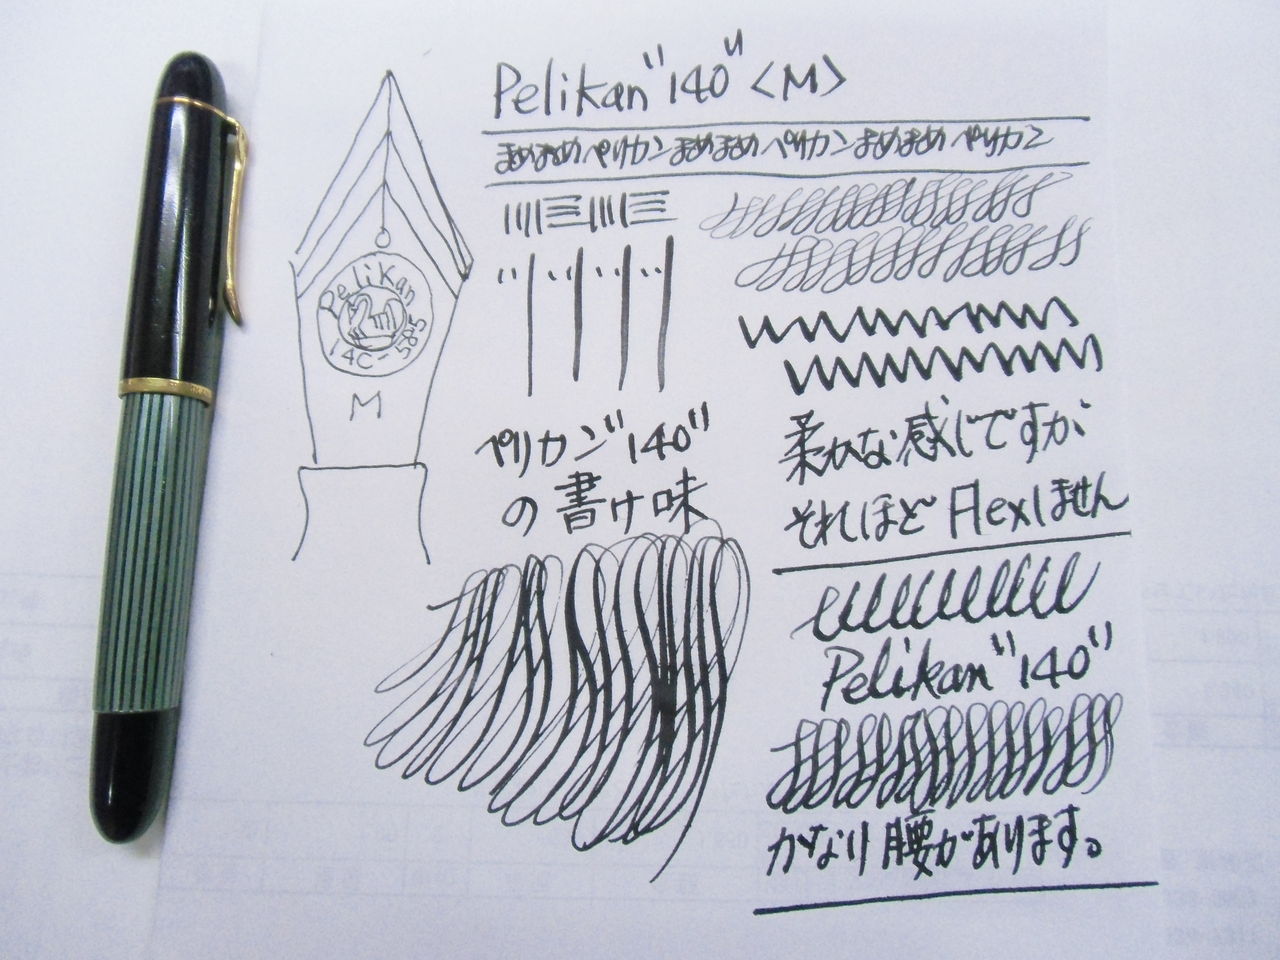 Pelikan "140" <M>
まめまめペリカンまめまめペリカンまめまめペリカン
Pelikan
14C-585
M
ペリカン"140"
の書け味
柔かな感じですが
それほどFlexしません
Pelikan "140"
かなり腰があります。